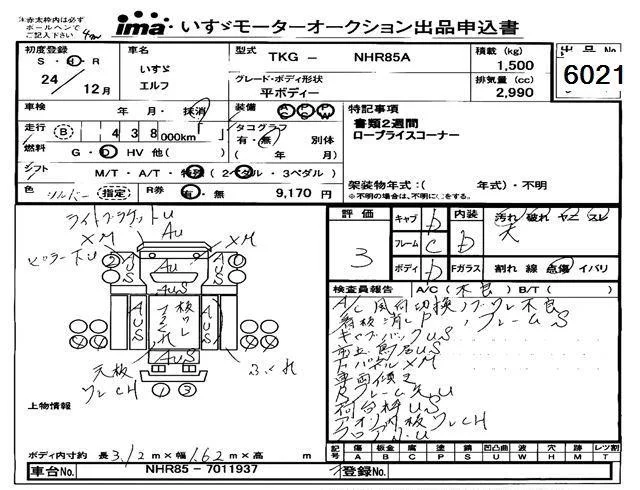 ※赤太枠内は必ず
ボールペンで
ご記入下さい
ima いすゞモーターオークション出品申込書
初度登録
S・H・R
24 / 12月
車名
いすゞ
エルフ
型式
TKG - NHR85A
グレード・ボディ形状
平ボディー
積載 (kg)
1,500
排気量 (cc)
2,990
出品 No
6021
車検 年・月・抹消
装備 AC PS PW
走行 (B) 438 000km
タコグラフ
有・無 別体
( 年 月)
燃料 G・D HV 他( )
シフト M/T・A/T・特殊 (2ペダル・3ペダル)
色 シルバー (指定) R券 有・無 9,170 円
特記事項
書類2週間
ロープライスコーナー
架装物年式:( 年式)・不明
※不明の場合は、不明に○をする。
ライトブラケットU
XM XM
ピラー下U
AU
AU
AUS
AUS
AUS
AUS
AUS
AUS
板ワレ
ワレCH
① ③
上物情報
ボディ内寸約 長 3.12 m×幅 1.62 m×高 m
車台No. NHR85 - 7011937
登録No.
評価
3
キャブ D
フレーム C
ボディ D
内装 D
汚れ 破れ ヤニ スレ
天
Fガラス 割れ 線 点傷 イバリ
検査員報告 A/C(不良) B/T( )
A/C 風向切換ノブワレ不良
看板消しP、フレームS
キャブバックUS
車両傾き
荷台枠US
記号
傷 A
板金 B
腐 C
塗 P
錆 S
凹凸曲 U
波 W
穴 H
跡 M
レツ割 T